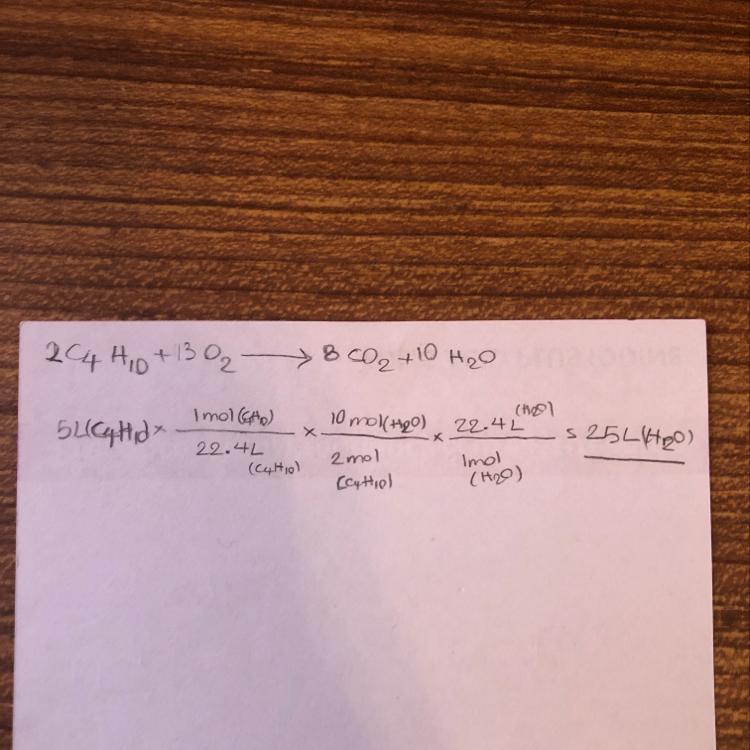 2C4 H10 + 13 O2 → 8 CO2 + 10 H2O
5L(C4H10) × 1mol(C4H10) / 22.4L (C4H10) × 10 mol(H2O) / 2mol (C4H10) × 22.4L (H2O) / 1mol (H2O) = 25L(H2O)